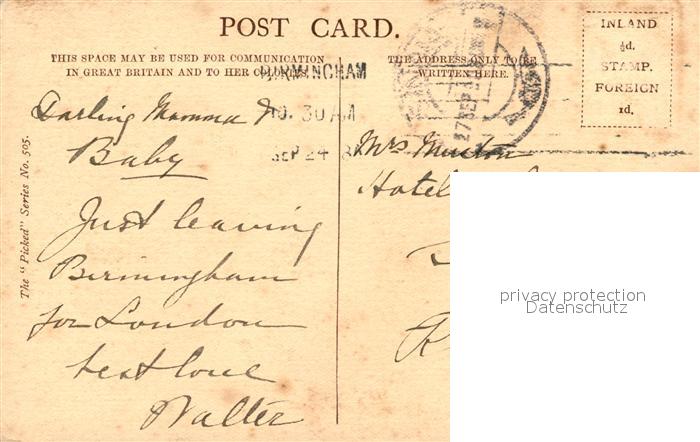 POST CARD.
THIS SPACE MAY BE USED FOR COMMUNICATION
IN GREAT BRITAIN AND TO HER COLONIES.
THE ADDRESS ONLY TO BE
WRITTEN HERE.
INLAND
½d.
STAMP.
FOREIGN
1d.
BIRMINGHAM
10.30 AM
SEP 24
27 SEP
The "Picked" Series No. 505.
Darling Mamma &
Baby
Just leaving
Birmingham
for London
best love
Walter
Mrs
Hotel
privacy protection
Datenschutz